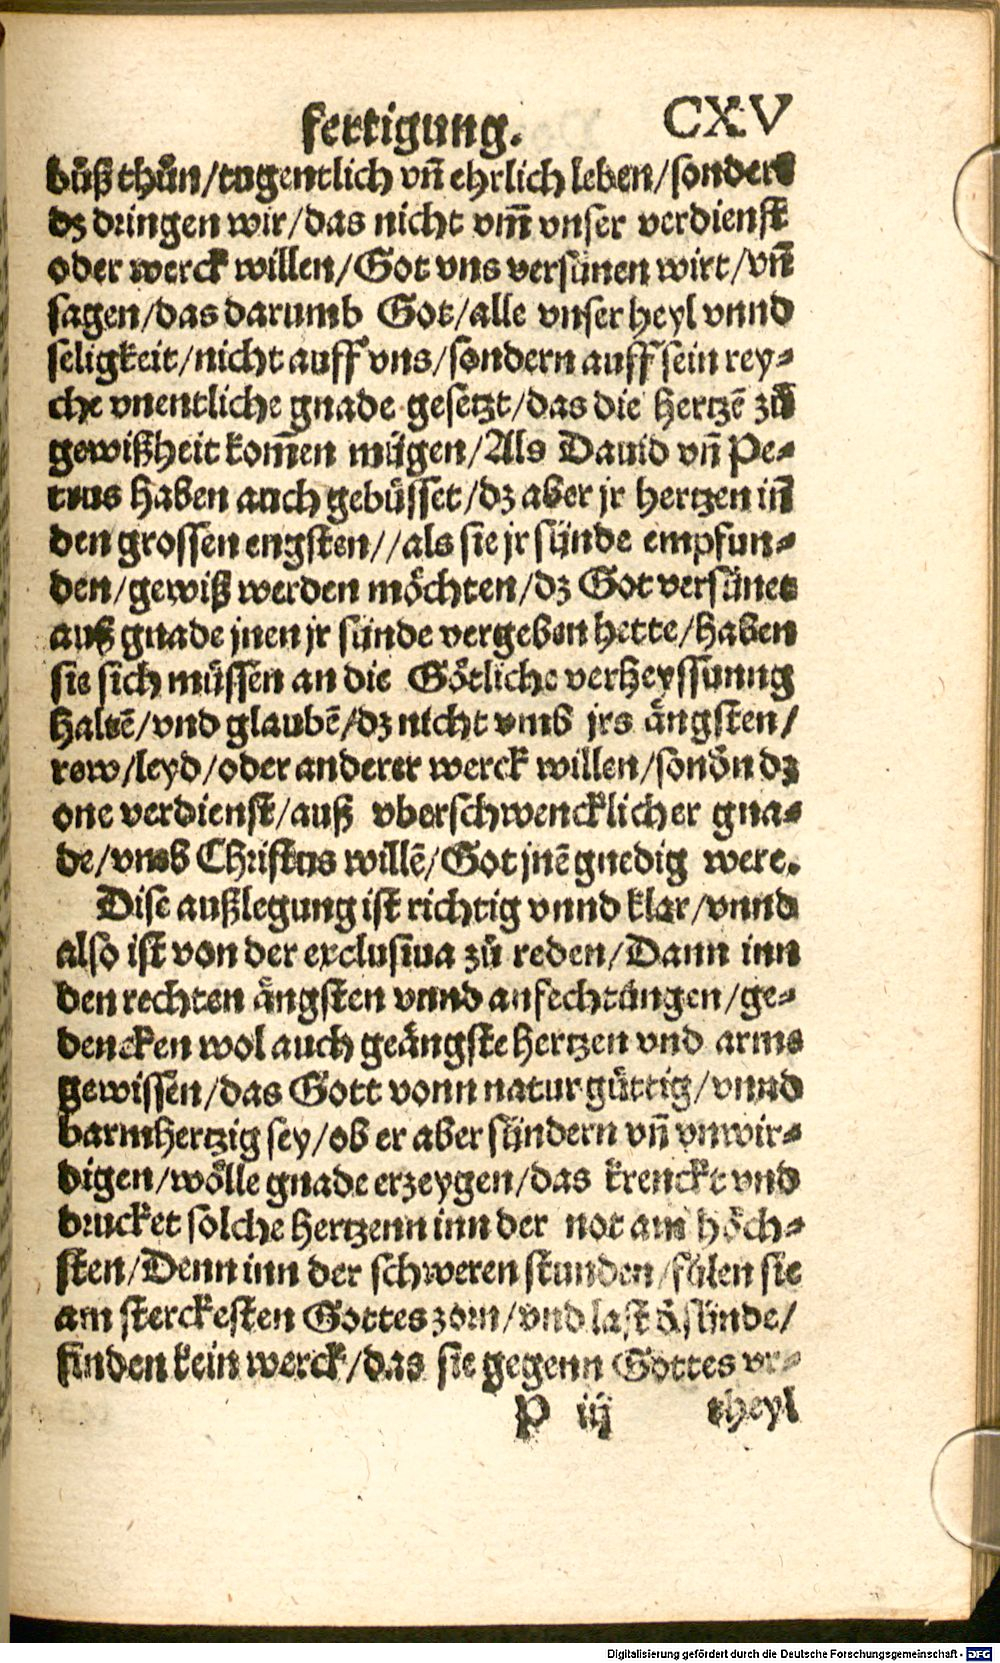 fertigung. CXV
bůß thůn/tugentlich vñ ehrlich leben/sonder
dz dringen wir/das nicht vm̃ vnser verdienst
oder werck willen/Got vns versünen wirt/vñ
sagen/das darumb Got/alle vnser heyl vnnd
seligkeit/nicht auff vns/sondern auff sein rey-
che vnentliche gnade gesetzt/das die hertzẽ zů
gewißheit kom̃en mügen/Als Dauid vñ Pe-
trus haben auch gebüsset/dz aber jr hertzen iñ
den grossen engsten//als sie jr sünde empfun-
den/gewiß werden möchten/dz Got versünet
auß gnade jnen jr sünde vergeben hette/haben
sie sich müssen an die Götliche verheyssunng
haltẽ/vnd glaubẽ/dz nicht vmb jrs ängsten/
rew/leyd/oder anderer werck willen/sonđn dz
one verdienst/auß vberschwencklicher gna-
de/vmb Christus willẽ/Got jnẽ gnedig were.
Dise außlegung ist richtig vnnd klar/vnnd
also ist von der exclusiua zů reden/Dann inn
den rechten ängsten vnnd anfechtungen/ge-
dencken wol auch geängste hertzen vnd arme
gewissen/das Gott vonn natur güttig/vnnd
barmhertzig sey/ob er aber sündern vñ vnwir-
digen/wölle gnade erzeygen/das krenckt vnd
drucket solche hertzenn inn der not am höch-
sten/Denn inn der schweren stunden/fülen sie
am sterckesten Gottes zorn/vnd last đ sünde/
finden kein werck/das sie gegenn Gottes vr-
P iij theyl
Digitalisierung gefördert durch die Deutsche Forschungsgemeinschaft - DFG